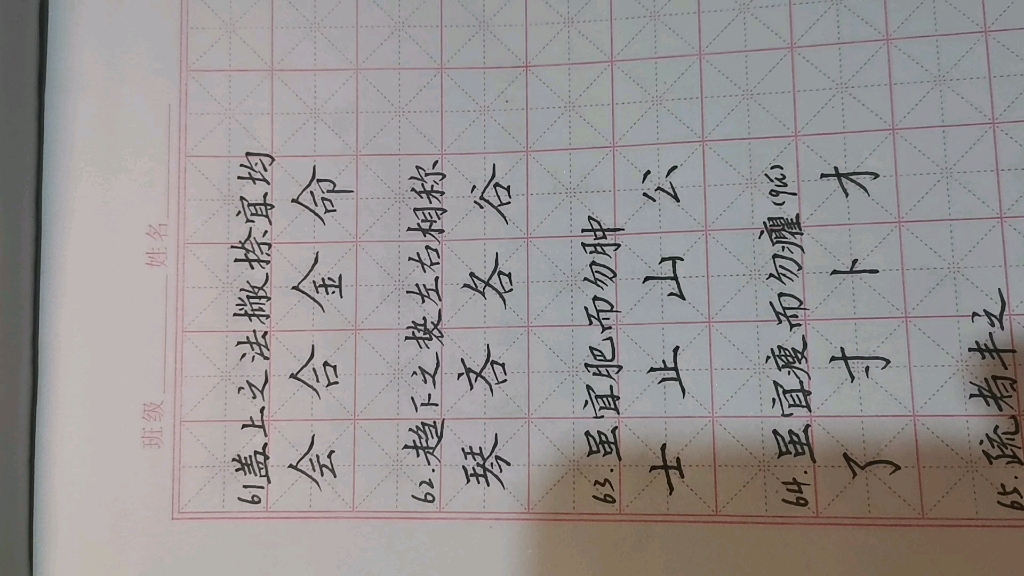 班级 姓名
61盖上之法撇捺宜均
会合金命
62.趋下之势左右相称
琴吝各谷
63.虽宜肥而勿肿
士止山公
64.虽宜瘦而勿癯(qú)
了寸卜才
65.疏者丰之